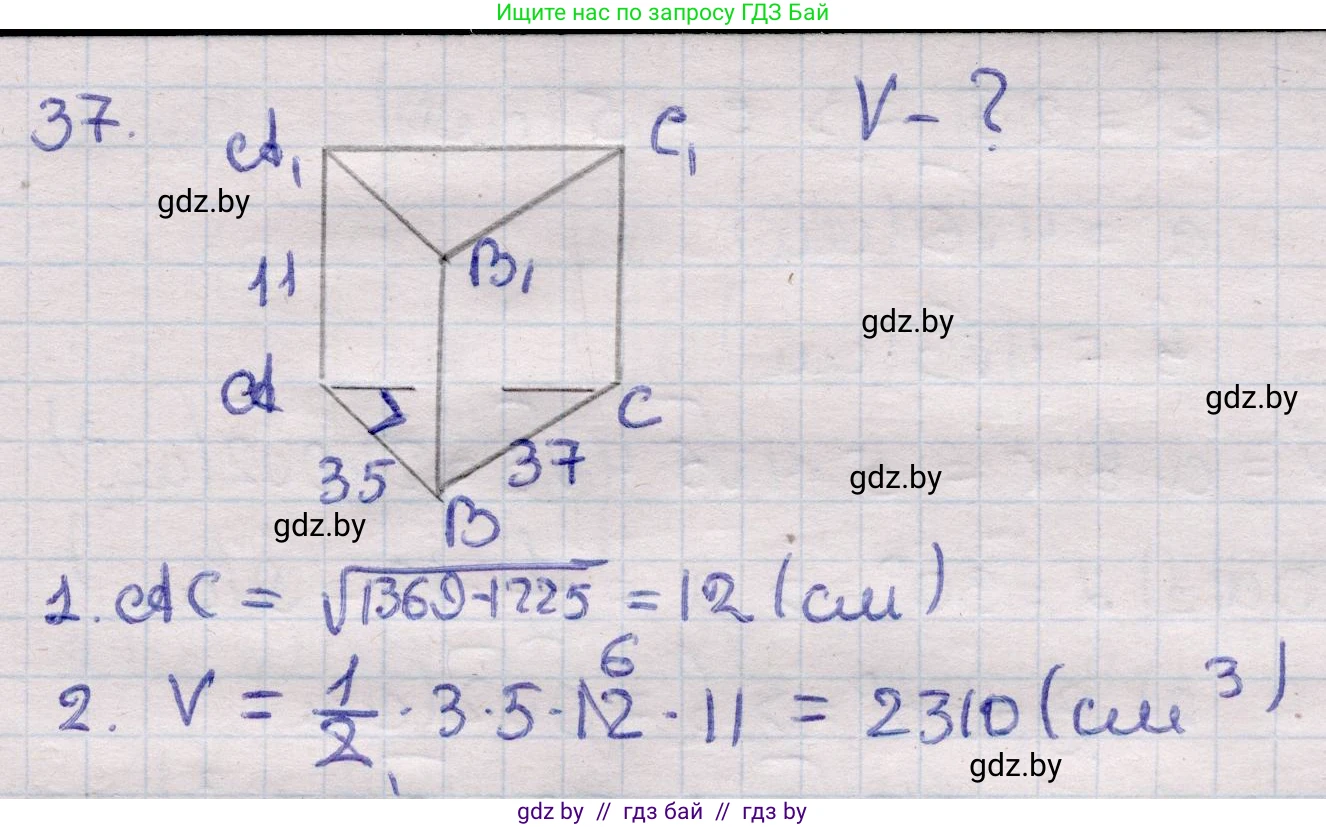 Ищите нас по запросу ГДЗ Бай
37.
V - ?
A₁
C₁
gdz.by
11
B₁
gdz.by
A
C
gdz.by
35
37
gdz.by
gdz.by
B
1. AC = √1369-1225 = 12 (см)
6
2. V = 1/2 · 3·5·12 · 11 = 2310 (см³)
1
gdz.by
gdz.by // гдз бай // гдз by